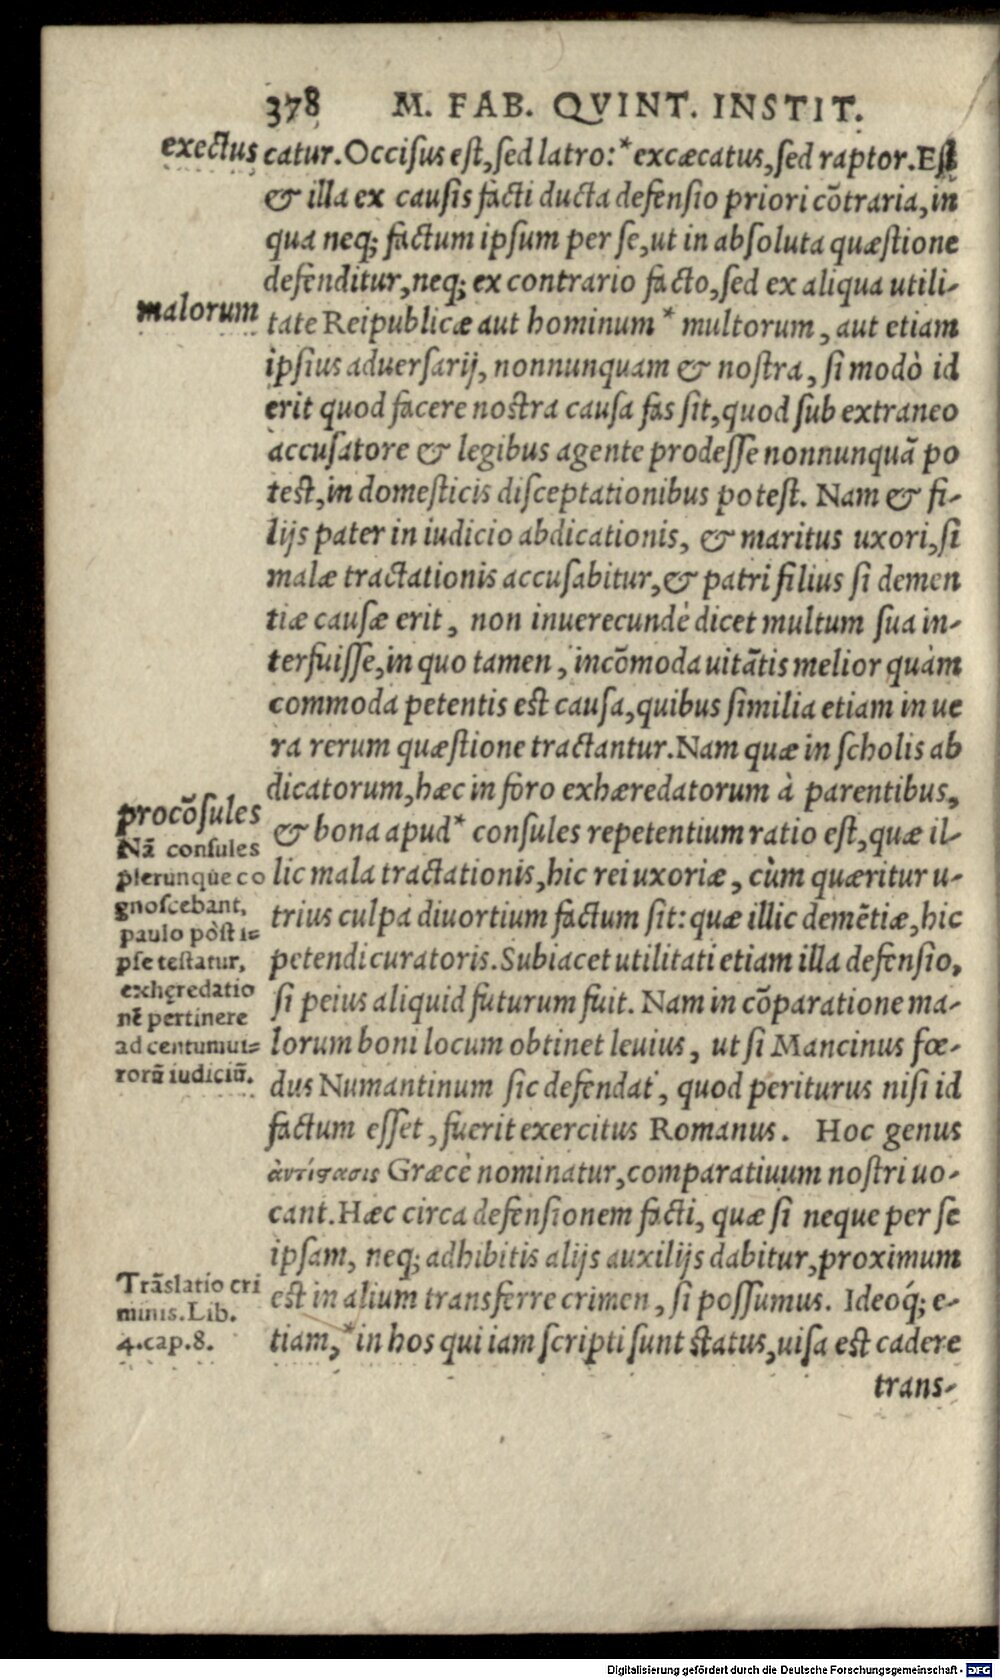 378 M. FAB. QVINT. INSTIT.
exectus
catur. Occisus est, sed latro: * excæcatus, sed raptor. Est
& illa ex causis facti ducta defensio priori cõtraria, in
qua neq; factum ipsum per se, ut in absoluta quæstione
defenditur, neq; ex contrario facto, sed ex aliqua utili-
malorum
tate Reipublicæ aut hominum * multorum, aut etiam
ipsius aduersarij, nonnunquam & nostra, si modò id
erit quod facere nostra causa fas sit, quod sub extraneo
accusatore & legibus agente prodesse nonnunquã po
test, in domesticis disceptationibus potest. Nam & fi-
lijs pater in iudicio abdicationis, & maritus uxori, si
malæ tractationis accusabitur, & patri filius si demen
tiæ causæ erit, non inuerecundè dicet multum sua in-
terfuisse, in quo tamen, incõmoda uitãtis melior quàm
commoda petentis est causa, quibus similia etiam in ue
ra rerum quæstione tractantur. Nam quæ in scholis ab
dicatorum, hæc in foro exhæredatorum à parentibus,
& bona apud * consules repetentium ratio est, quæ il-
lic mala tractationis, hic rei uxoriæ, cùm quæritur u-
trius culpa diuortium factum sit: quæ illic demẽtiæ, hic
petendi curatoris. Subiacet utilitati etiam illa defensio,
si peius aliquid futurum fuit. Nam in cõparatione ma-
lorum boni locum obtinet leuius, ut si Mancinus fœ-
dus Numantinum sic defendat, quod periturus nisi id
factum esset, fuerit exercitus Romanus. Hoc genus
ἀντίϛασις Græcè nominatur, comparatiuum nostri uo-
cant. Hæc circa defensionem facti, quæ si neque per se
ipsam, neq; adhibitis alijs auxilijs dabitur, proximum
est in alium transferre crimen, si possumus. Ideoq́; e-
tiam, * in hos qui iam scripti sunt status, uisa est cadere
trans-
procõsules
Nã consules
plerunque co
gnoscebant,
paulo pòst i=
pse testatur,
exhęredatio
nẽ pertinere
ad centumui=
rorũ iudiciũ.
Trãslatio cri
minis. Lib.
4. cap. 8.
Digitalisierung gefördert durch die Deutsche Forschungsgemeinschaft - DFG